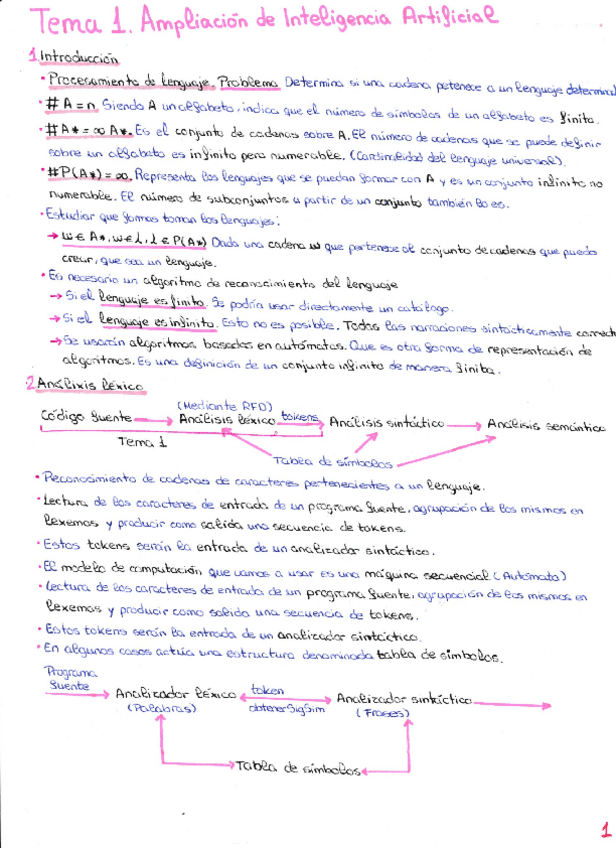 Tema 1. Ampliación de Inteligencia Artificial
1. Introducción
• Procesamiento de lenguaje. Problema. Determina si una cadena petenece a un lenguaje determinad
• #A = n. Siendo A un alfabeto, indica que el número de símbolos de un alfabeto es finito.
• #A* = ∞ A*. Es el conjunto de cadenas sobre A. El número de cadenas que se puede definir
sobre un alfabeto es infinito pero numerable. (Cardinalidad del lenguaje universal).
• #P(A*) = ∞. Representa los lenguajes que se puedan formar con A y es un conjunto infinito no
numerable. El número de subconjuntos a partir de un conjunto también lo es.
• Estudiar que formas toman los lenguajes:
→ w ∈ A*, w ∈ L, L ∈ P(A*) Dada una cadena w que pertenece al conjunto de cadenas que puedo
crear, que sea un lenguaje.
• Es necesario un algoritmo de reconocimiento del lenguaje
→ Si el lenguaje es finito. Se podría usar directamente un catálogo.
→ Si el lenguaje es infinito. Esto no es posible. Todas las narraciones sintácticamente correct
→ Se usarán algoritmos basados en autómatas. Que es otra forma de representación de
algoritmos. Es una definición de un conjunto infinito de manera finita.
2. Análixis léxico
(Mediante RFD)
Código fuente → Análisis léxico tokens → Análisis sintáctico → Análisis semántico
Tema 1
Tabla de símbolos
• Reconocimiento de cadenas de caracteres pertenecientes a un lenguaje.
• Lectura de los caracteres de entrada de un programa fuente, agrupación de los mismos en
lexemos y producir como salida una secuencia de tokens.
• Estos tokens serán la entrada de un analizador sintáctico.
• El modelo de computación que vamos a usar es una máquina secuencial (Autómata)
• Lectura de los caracteres de entrada de un programa fuente, agrupación de los mismos en
lexemos y producir como salida una secuencia de tokens.
• Estos tokens serán la entrada de un analizador sintáctico.
• En algunos casos actúa una estructura denominada tabla de símbolos.
Programa
fuente → Analizador léxico token Analizador sintáctico →
(Palabras) obtenerSigSim (Frases)
Tabla de símbolos
1